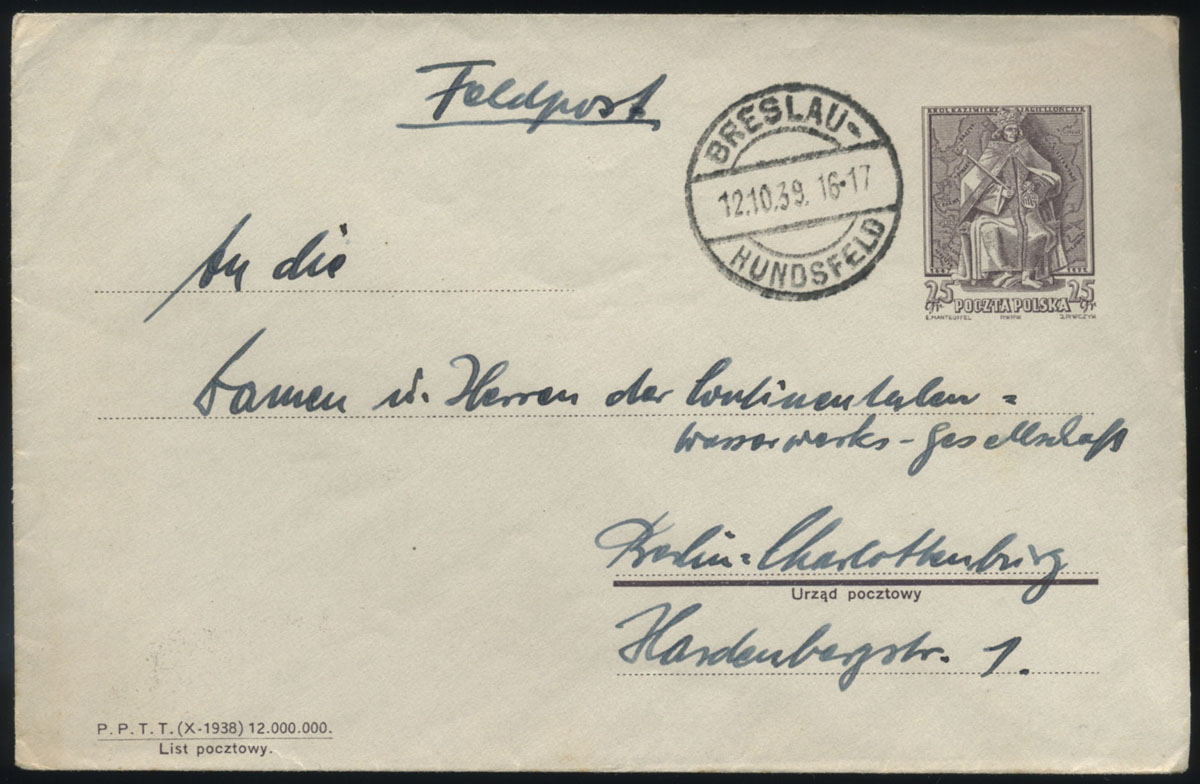 Feldpost
BRESLAU-
12.10.39. 16-17
HUNDSFELD
KRÓL KAZIMIERZ JAGIELLOŃCZYK
25 gr POCZTA POLSKA 25 gr
E. MANTEUFFEL
An die
Damen u. Herren der Continentalen =
Wasserwerks-Gesellschaft
Berlin=Charlottenburg
Urząd pocztowy
Hardenbergstr. 1.
P. P. T. T. (X-1938) 12.000.000.
List pocztowy.